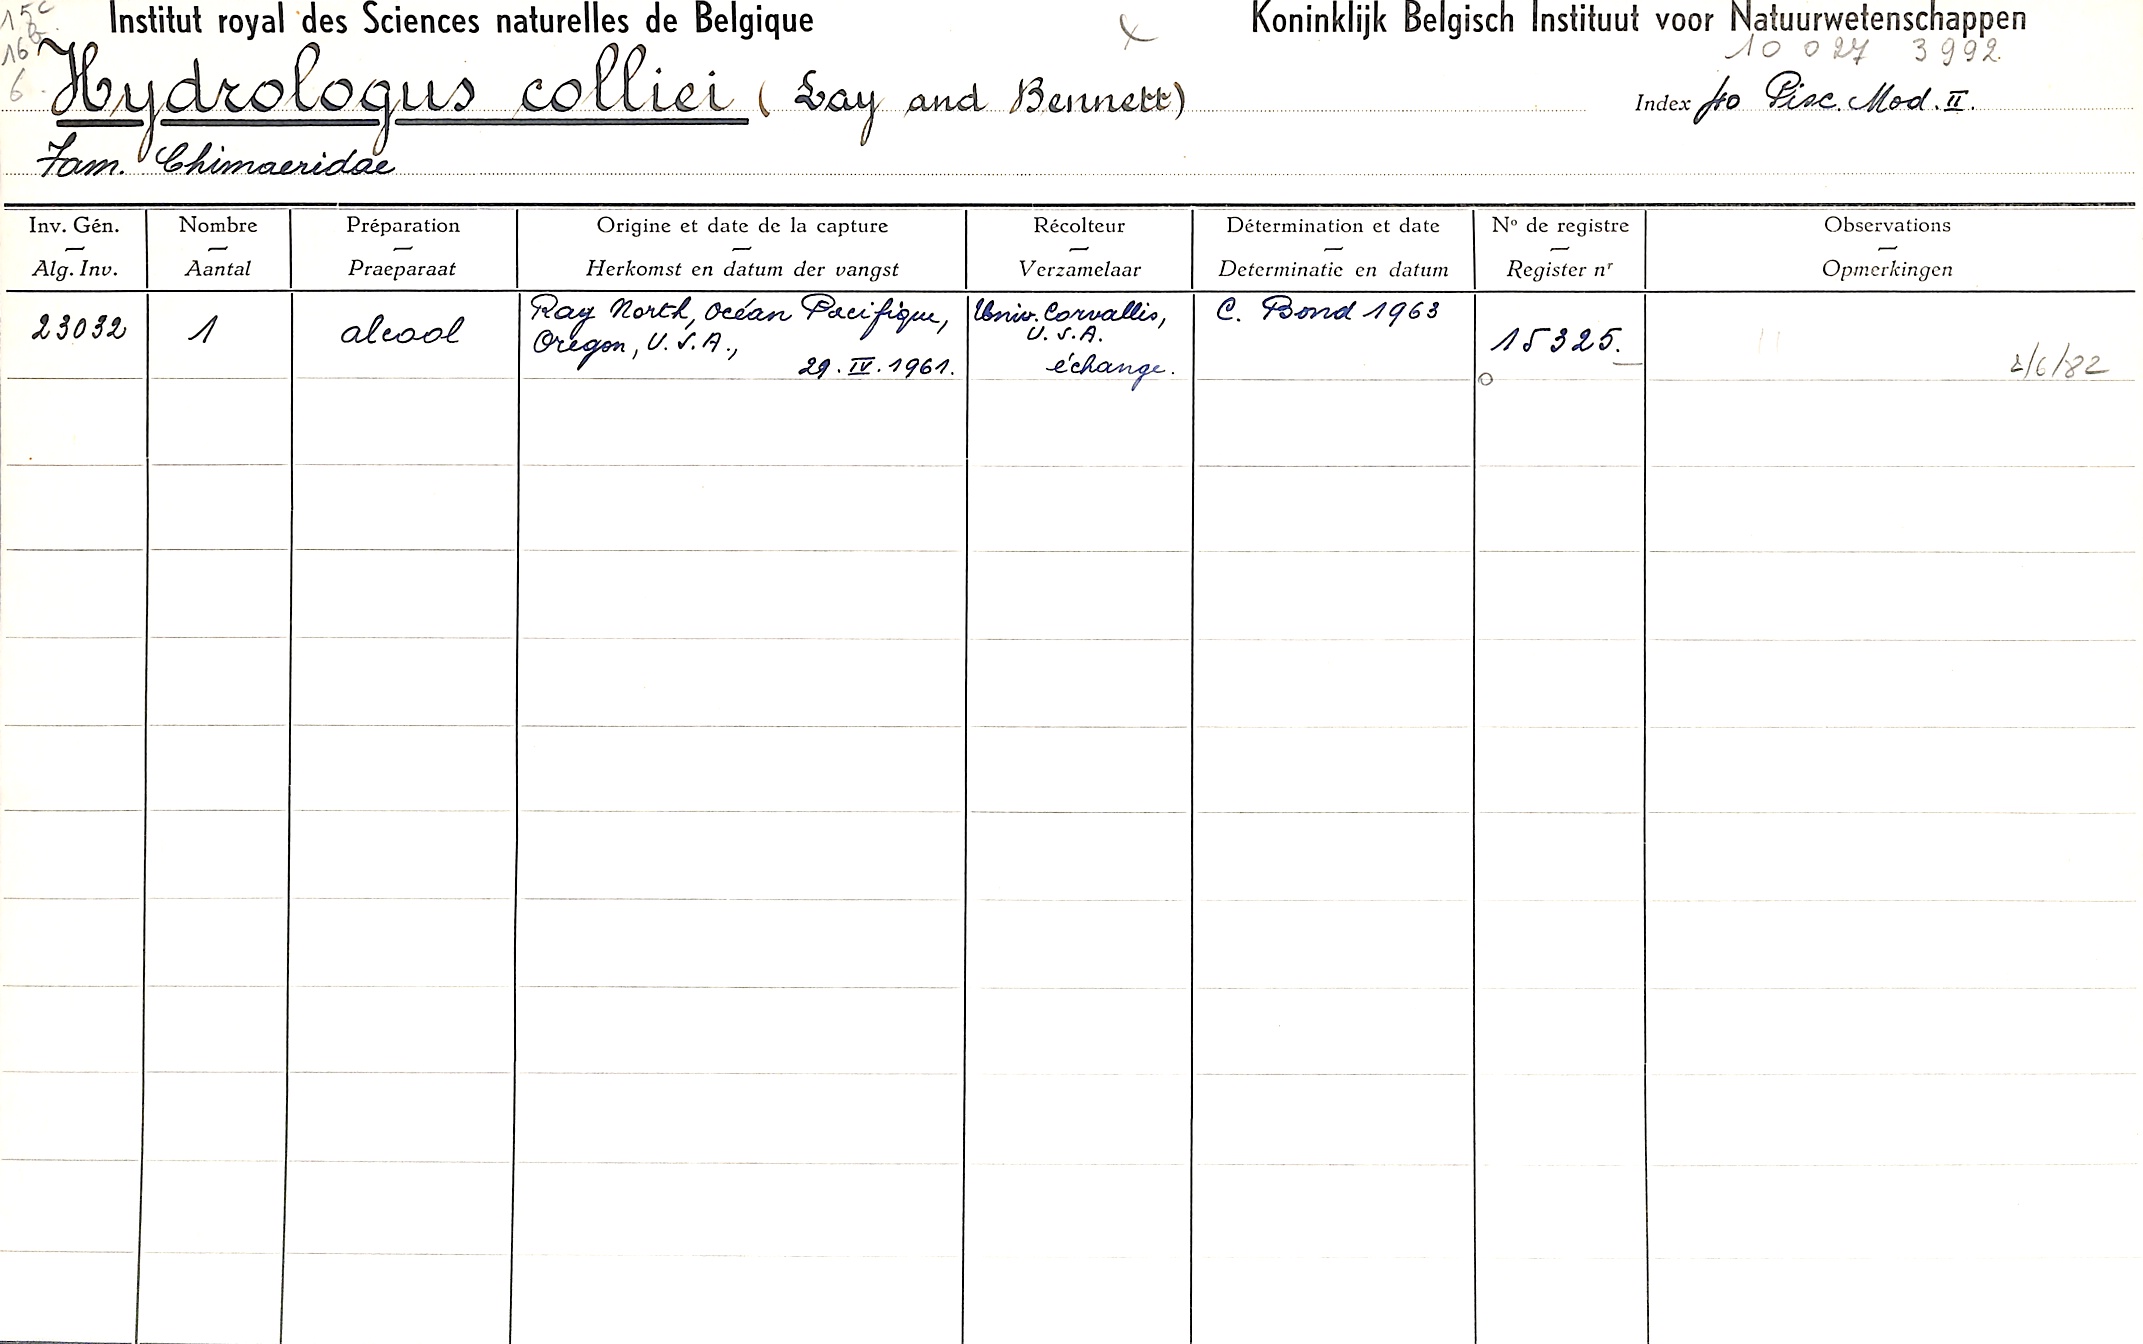 15c
Institut royal des Sciences naturelles de Belgique
Koninklijk Belgisch Instituut voor Natuurwetenschappen
16b
10 027 3992
6.
Hydrologus colliei (Lay and Bennett)
Index Pisc. Mod. II.
Fam. Chimaeridae
Inv. Gén. Nombre Préparation Origine et date de la capture Récolteur Détermination et date No de registre Observations
Alg. Inv. Aantal Praeparaat Herkomst en datum der vangst Verzamelaar Determinatie en datum Register nr Opmerkingen
23032 1 alcool
Ray North, Océan Pacifique,
Oregon, U.S.A.,
29.IV.1961.
Univ. Corvallis,
U.S.A.
échange.
C. Bond 1963
15325.
2/6/82